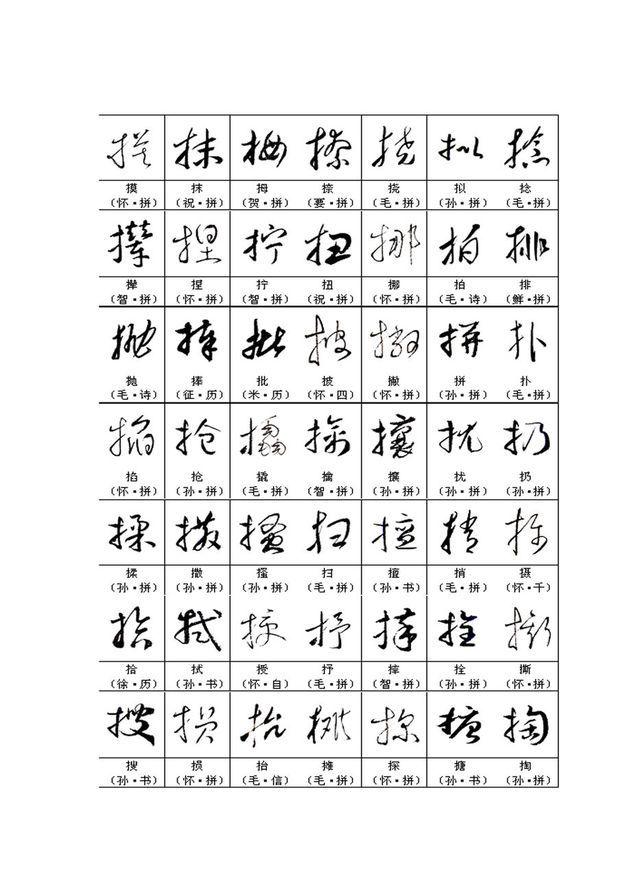 摸 抹 拇 捺 挠 拟 捻
(怀·拼) (祝·拼) (贺·拼) (婁·拼) (毛·拼) (孙·拼) (毛·拼)
撵 捏 拧 扭 挪 拍 排
(智·拼) (怀·拼) (智·拼) (祝·拼) (怀·拼) (毛·诗) (鲜·拼)
抛 捧 批 披 撇 拼 扑
(毛·诗) (征·历) (米·历) (怀·四) (怀·拼) (孙·拼) (毛·拼)
掐 抢 撬 擒 攘 扰 扔
(怀·拼) (孙·拼) (毛·拼) (智·拼) (孙·拼) (孙·拼) (孙·拼)
揉 撒 搔 扫 擅 捎 摄
(孙·拼) (孙·拼) (孙·拼) (毛·拼) (孙·书) (毛·拼) (怀·千)
拾 拭 授 抒 摔 拴 撕
(徐·历) (孙·书) (怀·自) (毛·拼) (智·拼) (孙·拼) (怀·拼)
搜 损 抬 摊 探 搪 掏
(孙·书) (怀·拼) (毛·信) (毛·拼) (怀·拼) (孙·书) (孙·拼)